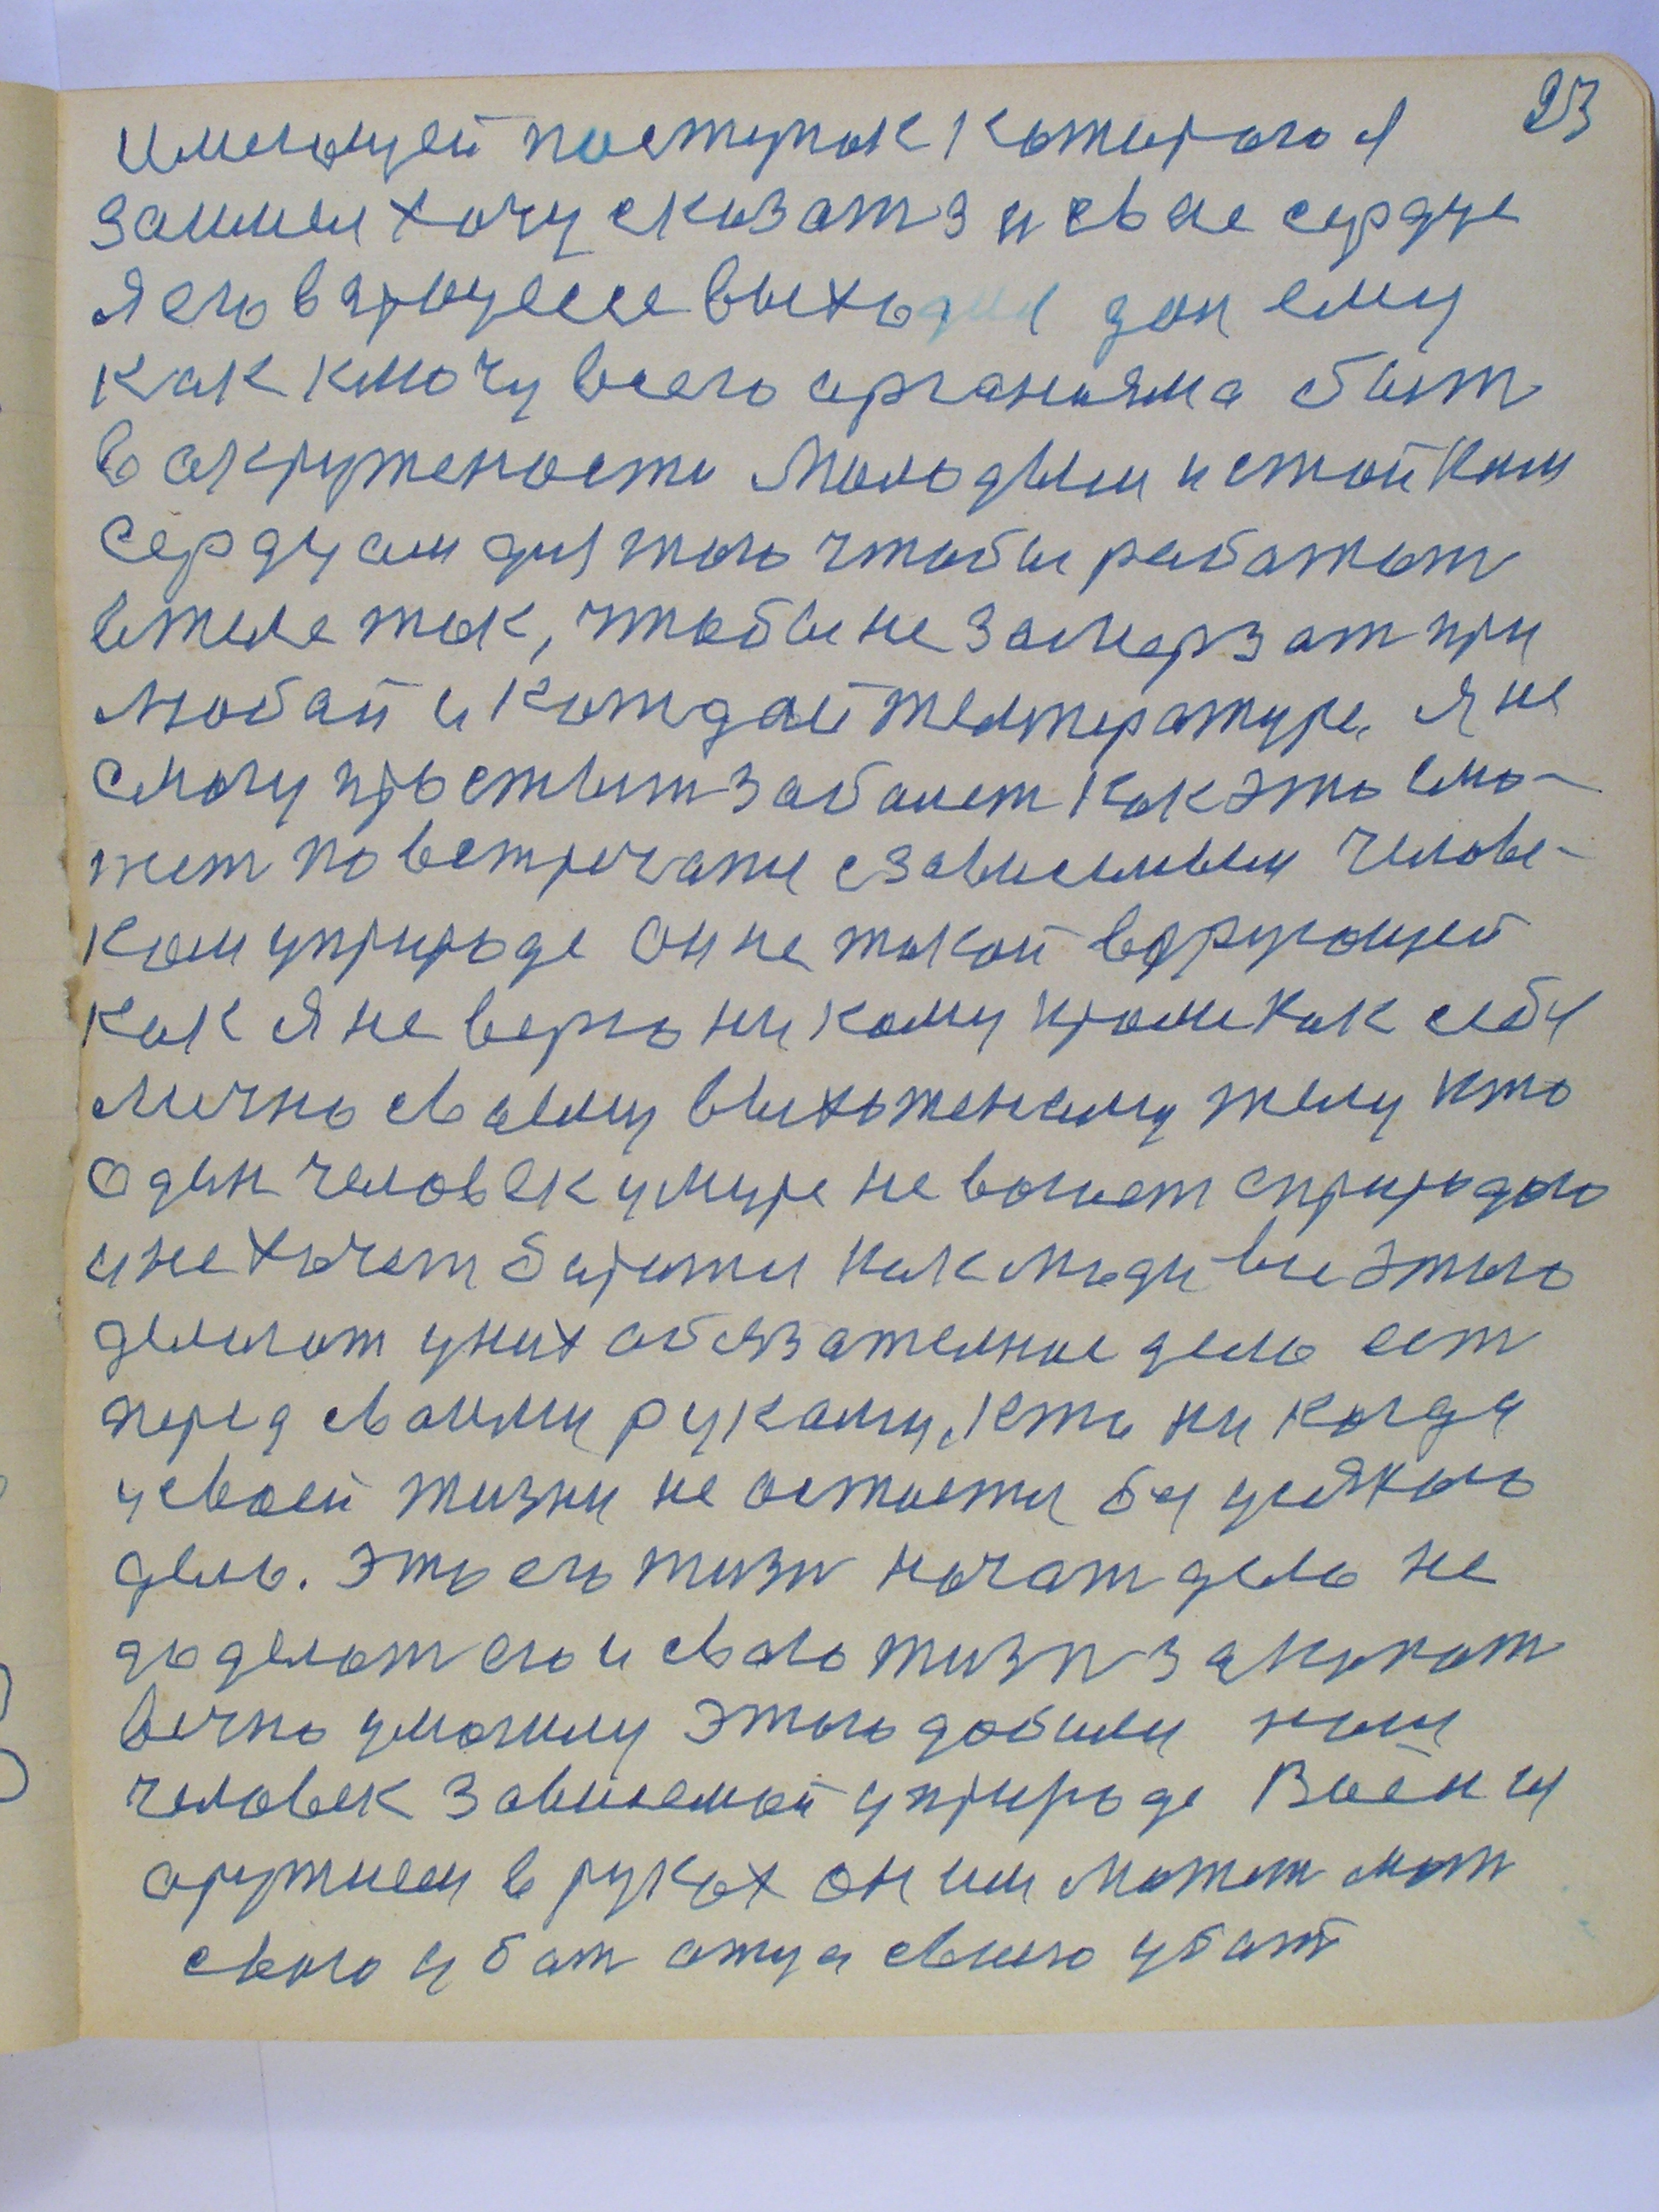 23
имеющей поступок которого я
занимал хочу сказат за и свае сердце
я его в процессе выходил дал ему
как ключу всего организма быт
в окружености молодым и стойким
сердцам для того чтобы работат
в теле так, чтобы не замерзат при
любай и каждай температуре. Я не
смогу простыт заболет как это смо-
жет повстречатся с зависимым челове-
ком у природе Он не такой верующей
как я не верю ни кому кроме как себя
лично своему выхоженаму телу кто
один человек у мире не воюет с природою
и не хочет биртися как люди все этого
делают у них обязателное дело ест
перед своими руками, кто ни когда
у своей жизни не остается без усякого
дела. Это его жизн начат дело не
доделат его и свою жизн закопат
вечно у могилу этого добился наш
человек зависемай у природе Воен и
аружием в руках он им может мат
свою убат отца своего убат